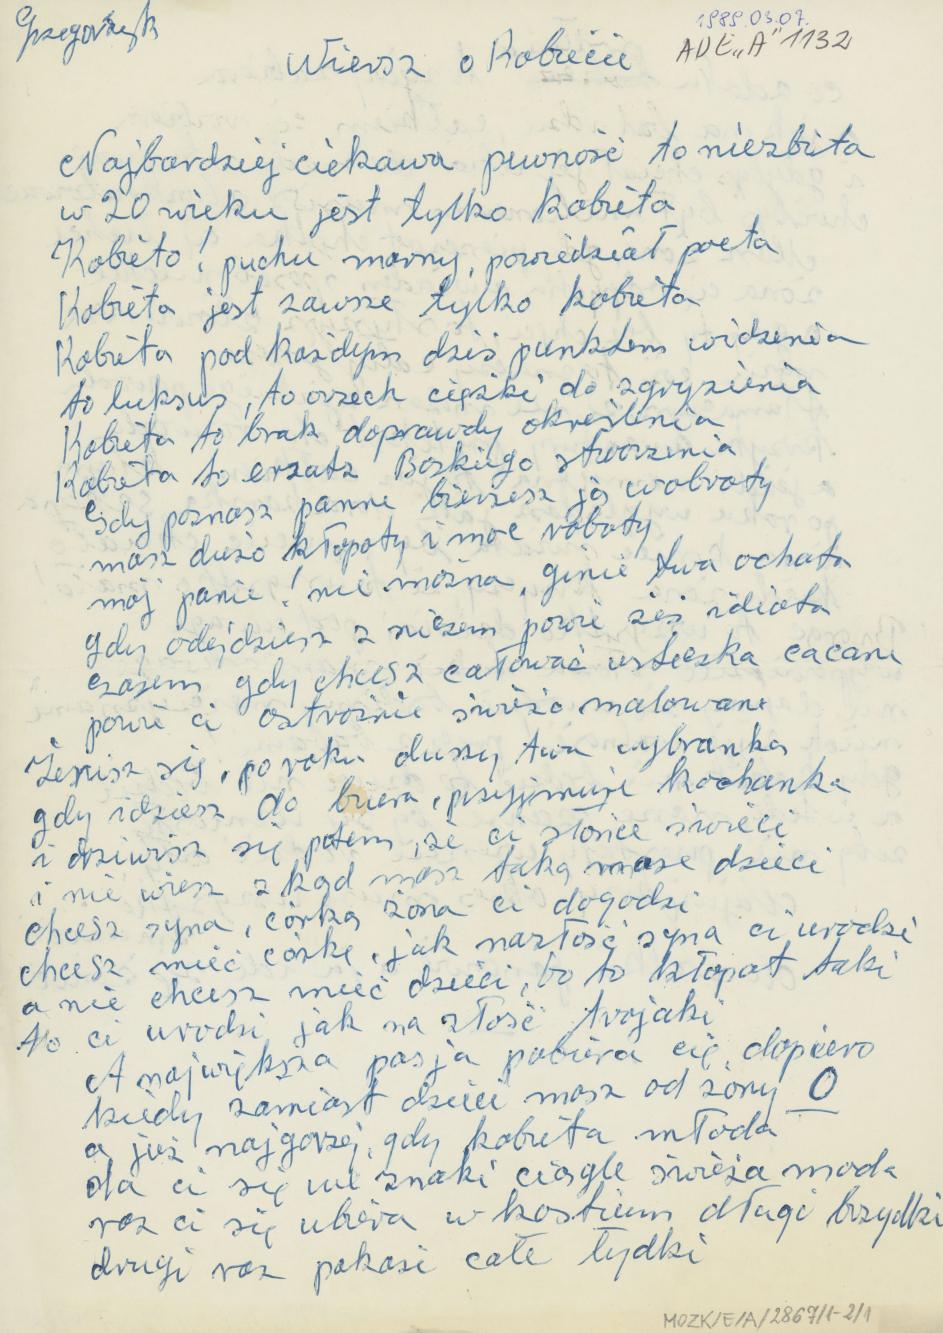 Grzegorzyk
1989.03.07.
ADE „A" 1132
Wiersz o Kobiecie
Najbardziej ciekawa pewność to niezbita
w 20 wieku jest tylko kobieta
Kobieto! puchu marny, powiedział poeta
Kobieta jest zawsze tylko kobieta
Kobieta pod każdym dziś punktem widzenia
to luksus, to orzech ciężki do zgryzienia
Kobieta to brak doprawdy określenia
Kobieta to erzatz Boskiego stworzenia
Gdy poznasz pannę bierzesz ją w obroty
masz dużo kłopoty i moc roboty
mój panie! nie można, ginie twa ochota
gdy odejdziesz z niczem powie żeś idiota
czasem gdy chcesz całować usteczka cacane
powie ci ostrożnie świeżo malowane
Żenisz się, po roku duszy twa wybranka
gdy idziesz do biura, przyjmuje kochanka
i dziwisz się potem, że ci słońce świeci
i nie wiesz skąd masz taką masę dzieci
chcesz syna, córką żona ci dogodzi
chcesz mieć córkę, jak na złość syna ci urodzi
a nie chcesz mieć dzieci, bo to kłopot taki
to ci urodzi jak na złość trojaki
A największa pasja pobiera cię dopiero
kiedy zamiast dzieci masz od żony 0
a już najgorzej, gdy kobieta młoda
da ci się we znaki ciągle świeża moda
raz ci się ubiera w kostium długi brzydki
drugi raz pokaże całe łydki
MOZK/E/A/2867/1-2/1